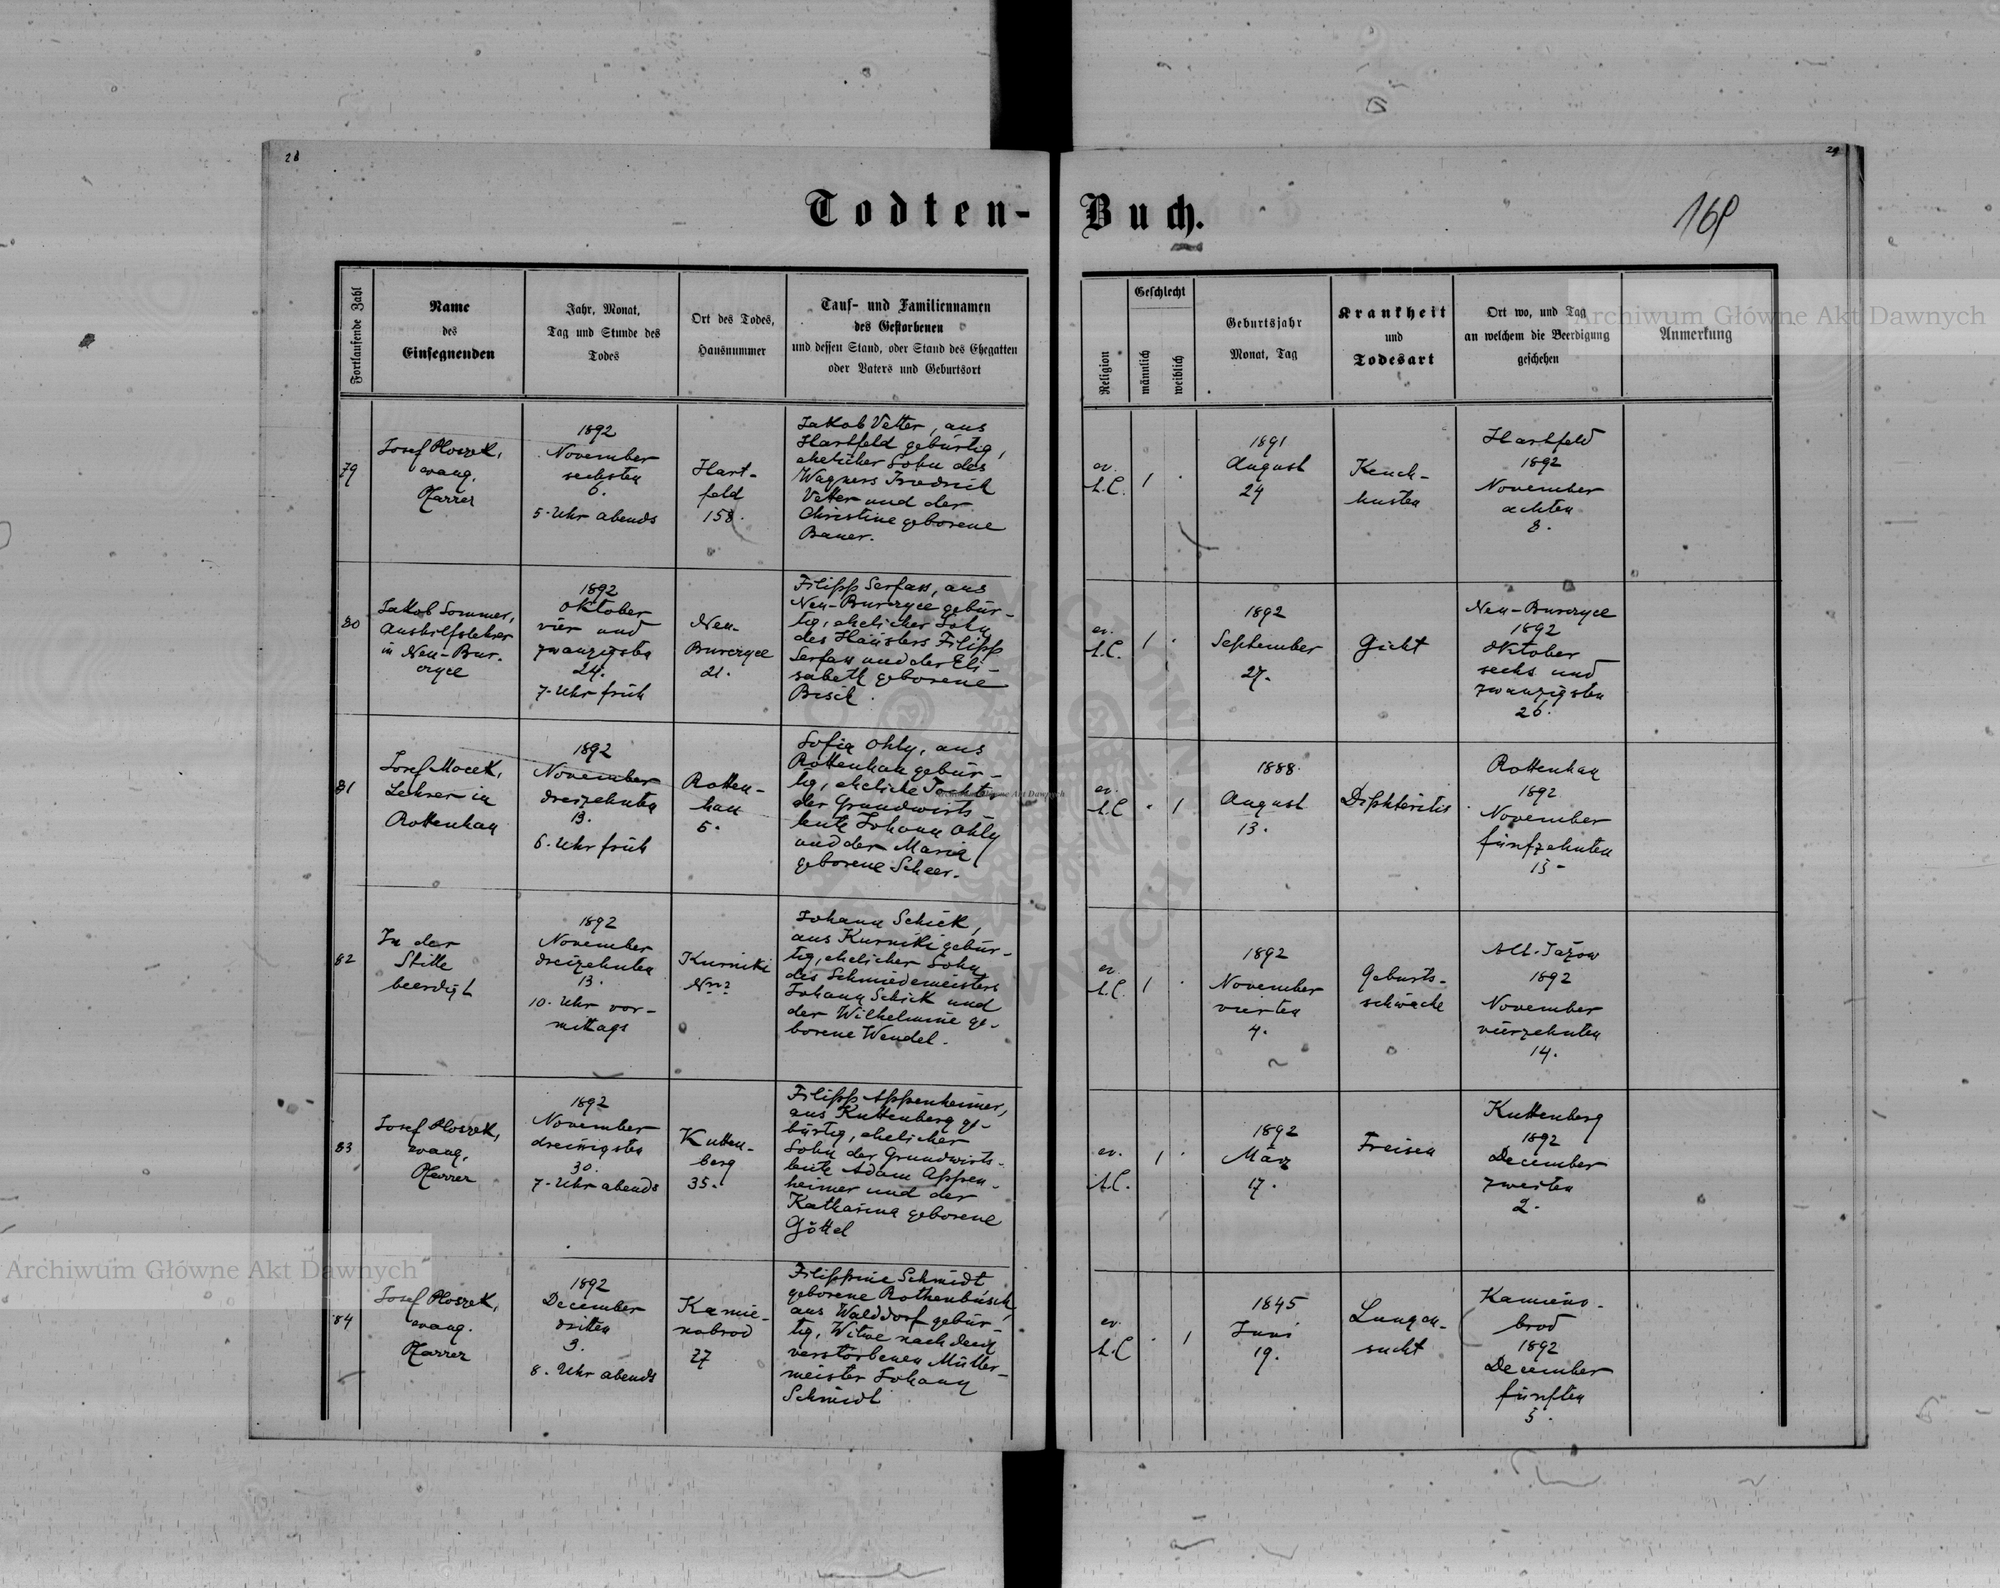 28
29
Todten-Buch.
169
Fortlaufende Zahl
Name
des
Einsegnenden
Jahr, Monat,
Tag und Stunde des
Todes
Ort des Todes,
Hausnummer
Tauf- und Familiennamen
des Gestorbenen
und dessen Stand, oder Stand des Ehegatten
oder Vaters und Geburtsort
Religion
Geschlecht
männlich
weiblich
Geburtsjahr
Monat, Tag
Krankheit
und
Todesart
Ort wo, und Tag
an welchem die Beerdigung
geschehen
Anmerkung
79
Josef Ploszek,
evang.
Pfarrer
1892
November
sechsten
6.
5. Uhr abends
Hart-
feld
158.
Jakob Vetter, aus
Hartfeld gebürtig,
ehelicher Sohn des
Wagners Friedrich
Vetter und der
Christine geborene
Bauer.
ev.
A.C.
1
.
1891
August
24
Keuch-
husten
Hartfeld
1892
November
achten
8.
80
Jakob Sommer,
Aushilfslehrer
in Neu-Bur-
czyce
1892
Oktober
vier und
zwanzigsten
24.
7. Uhr früh
Neu-
Burczyce
21.
Filipp Serfass, aus
Neu-Burczyce gebür-
tig, ehelicher Sohn
des Häuslers Filipp
Serfass und der Eli-
sabeth geborene
Bisch.
ev.
A.C.
1
.
1892
September
27.
Gicht
Neu-Burczyce
1892
Oktober
sechs und
zwanzigsten
26.
81
Josef Macek,
Lehrer in
Rottenhan
1892
November
dreizehnten
13.
6. Uhr früh
Rotten-
han
5.
Sofia Ohly, aus
Rottenhan gebür-
tig, eheliche Tochter
der Grundwirts
leute Johann Ohly
und der Maria
geborene Scheer.
ev.
A.C
.
1
1888.
August
13.
Diphteritis
Rottenhan
1892
November
fünfzehnten
15-
82
In der
Stille
beerdigt
1892
November
dreizehnten
13.
10. Uhr vor-
mittags
Kurniki
Nro?
Johann Schick,
aus Kurniki gebür-
tig, ehelicher Sohn
des Schmiedemeisters
Johann Schick und
der Wilhelmine ge-
borene Wendel.
ev.
A.C.
1
.
1892
November
vierten
4.
Geburts-
schwäche
Alt-Jażow
1892
November
vierzehnten
14.
83
Josef Ploszek,
evang.
Pfarrer
1892
November
dreissigsten
30.
7. Uhr abends
Kutten-
berg
35.
Filipp Appenheimer,
aus Kuttenberg ge-
bürtig, ehelicher
Sohn der Grundwirts-
leute Adam Appen-
heimer und der
Katharina geborene
Göttel
ev.
A.C.
1
.
1892
März
17.
Freisen
Kuttenberg
1892
December
zweiten
2.
84
Josef Ploszek,
evang.
Pfarrer
1892
December
dritten
3.
8. Uhr abends
Kamie-
nobrod
27
Filippine Schmidt
geborene Rothenbusch,
aus Walddorf gebür-
tig, Witwe nach dem
verstorbenen Müller-
meister Johann
Schmidt
ev.
A.C
.
1
1845
Juni
19.
Lungen-
sucht
Kamieno-
brod
1892
December
fünften
5.
Archiwum Główne Akt Dawnych
Archiwum Główne Akt Dawnych
Archiwum Główne Akt Dawnych